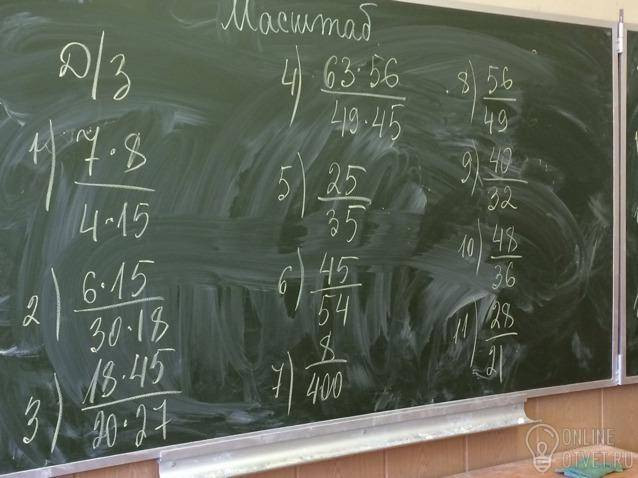 Масштаб
Д/З
1) 7·8/4·15
2) 6·15/30·18
3) 18·45/20·27
4) 63·56/49·45
5) 25/35
6) 45/54
7) 8/400
8) 56/49
9) 40/32
10) 48/36
11) 28/21
ONLINE
OTVET.RU